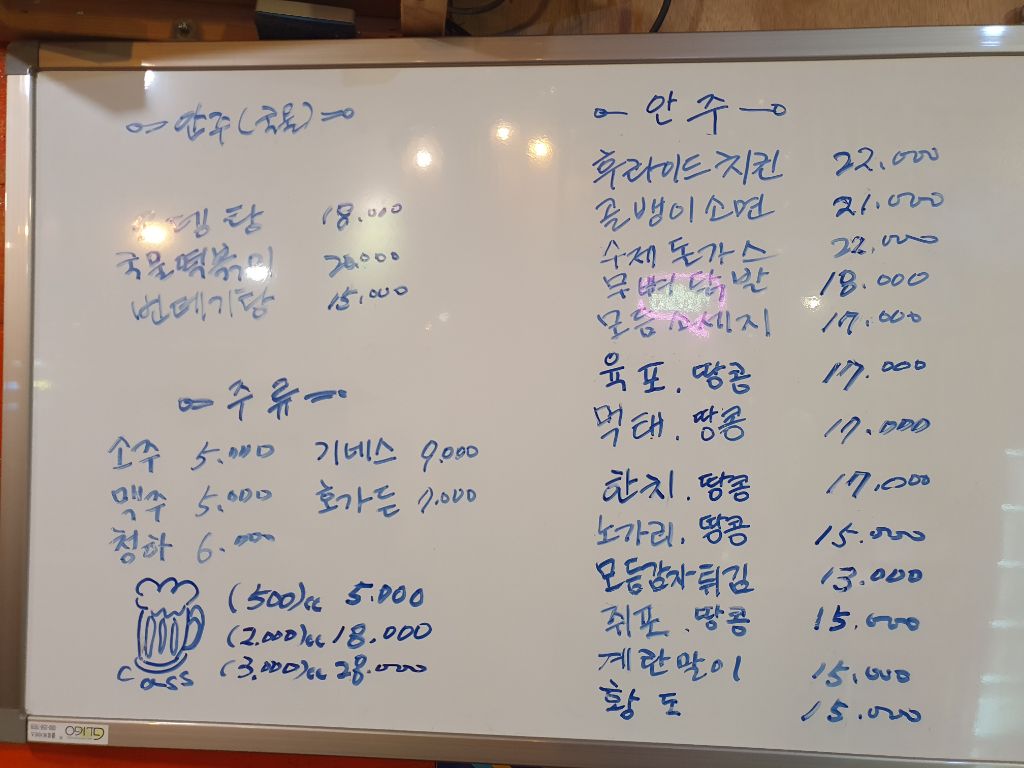 안주(국물)
오뎅탕 18.000
국물떡볶이 20.000
번데기탕 15.000
주류
소주 5.000 기네스 9.000
맥주 5.000 호가든 7.000
청하 6.000
(500)cc 5.000
(2.000)cc 18.000
(3.000)cc 28.000
Cass
안주
후라이드치킨 22.000
골뱅이소면 21.000
수제돈가스 22.000
무뼈닭발 18.000
모듬소세지 17.000
육포.땅콩 17.000
먹태.땅콩 17.000
한치.땅콩 17.000
노가리.땅콩 15.000
모듬감자튀김 13.000
쥐포.땅콩 15.000
계란말이 15.000
황도 15.000
GLIGO